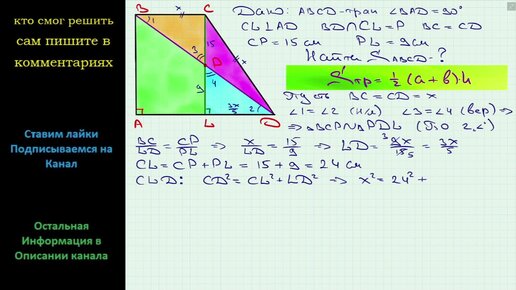 кто смог решить
сам пишите в
комментариях
Ставим лайки
Подписываемся на
Канал
Остальная
Информация в
Описании канала
B x C
1 3 15 x
P
9 4 3x/5 2
A L D
Дано: ABCD-трап ∠BAD=90°
CL⊥AD BD∩CL=P BC=CD
CP=15 см PL=9 см
Найти S ABCD-?
Sтр=½(a+b)·h
Пусть BC=CD=x
∠1=∠2 (н/л) ∠3=∠4 (вер) ⇒
⇒ △BCP∾△PDL (по 2∠)
BC/LD=CP/PL ⇒ x/LD=15/9 ⇒ LD=9x/15=3x/5
CL=CP+PL=15+9=24 см
CLD: CD²=CL²+LD² ⇒ x²=24²+